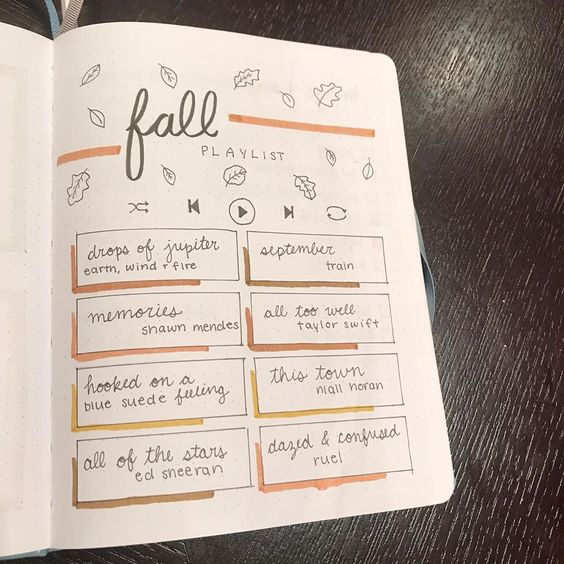 fall
PLAYLIST
drops of jupiter
earth, wind + fire
september
train
memories
shawn mendes
all too well
taylor swift
hooked on a
blue suede feeling
this town
niall horan
all of the stars
ed sheeran
dazed & confused
ruel